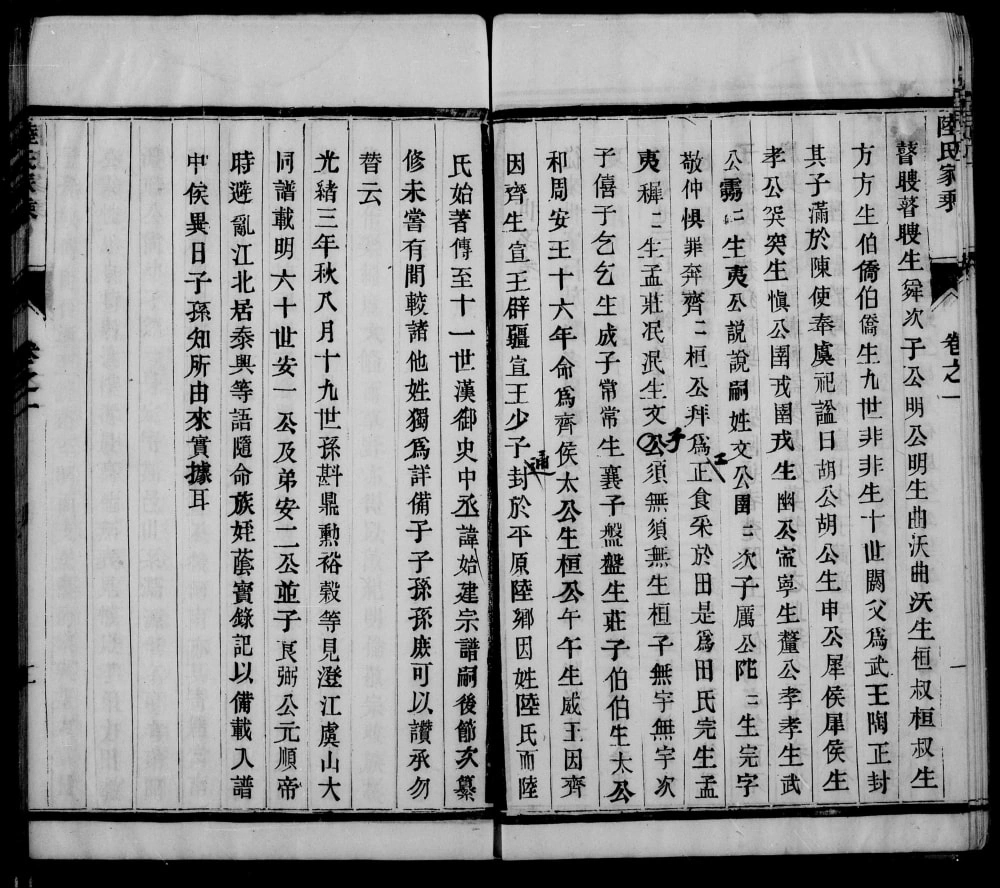 陸氏家乘
卷之一
一
瞽瞍瞽瞍生舜次子公明公明生曲沃曲沃生桓叔桓叔生
方方生伯僑伯僑生九世非非生十世閼父爲武王陶正封
其子滿於陳使奉虞祀諡曰胡公胡公生申公犀侯犀侯生
孝公突突生愼公圉戎圉戎生幽公寗寧生釐公孝孝生武
公靈二生夷公說說嗣姓文公圉二次子厲公佗二生完字
敬仲懼罪奔齊二桓公拜爲工正食采於田是爲田氏完生孟
夷穉二生孟莊泯泯生文子須無須無生桓子無宇無宇次
子僖子乞乞生成子常常生襄子盤盤生莊子伯伯生太公
和周安王十六年命爲齊侯太公生桓公午午生威王因齊
因齊生宣王辟疆宣王少子通封於平原陸鄉因姓陸氏而陸
氏始著傳至十一世漢御史中丞諱始建宗譜嗣後節次纂
修未嘗有間較諸他姓獨爲詳備子子孫孫庶可以讚承勿
替云
光緒三年秋八月十九世孫斟鼎勲裕榖等見澄江虞山大
同譜載明六十世安一公及弟安二公並子良弼公元順帝
時避亂江北居泰興等語隨命族姪蔭實錄記以備載入譜
中俟異日子孫知所由來實據耳
陸氏家乘
卷之一